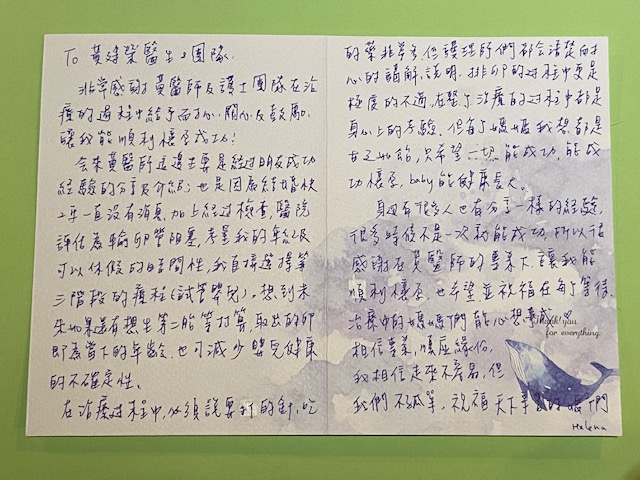 To 黃建榮醫生&團隊:
非常感謝黃醫師及護士團隊在治
療的過程中給予耐心、關心及鼓勵,
讓我能順利懷孕成功!
會來黃醫師這邊主要是經過朋友成功
經驗的分享及介紹; 也是因為結婚快
2年一直沒有消息, 加上經過檢查, 醫院
評估為輸卵管阻塞, 考量我的年紀及
可以休假的時間性, 我直接選擇第
三階段的療程(試管嬰兒), 想到未
來如果還有想生第二胎等打算, 取出的卵
即為當下的年齡, 也可減少嬰兒健康
的不確定性。
在治療過程中, 必須說要打的針, 吃
的藥非常多, 但護理師們都會清楚耐
心的講解、說明. 排卵的過程中更是
極度的不適, 在整個治療的過程中都是
身心上的考驗. 但每個媽媽我想都是
甘之如飴, 只希望一切能成功, 能成
功懷孕, baby能健康長大.
身邊有很多人也有分享一樣的經驗,
很多時候不是一次就能成功, 所以很
感謝在黃醫師的專業下, 讓我能
順利懷孕. 也希望並祝福在每個等待、
治療中的媽媽們能心想事成.
Thank you
for everything.
相信專業, 順應緣份,
我相信走來不容易, 但
我們不孤單, 祝福天下的媽媽們
Helena